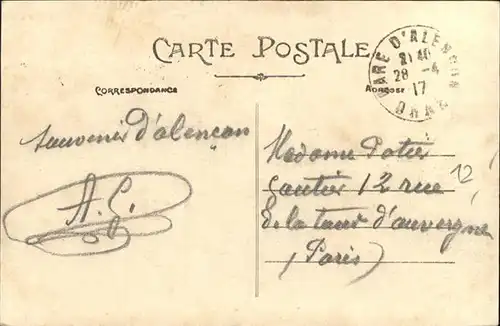 CARTE POSTALE
CORRESPONDANCE
ADRESSE
GARE D'ALENÇON
21 40
28 -4
17
ORNE
Souvenir d'alençon
A. C.
Madame Potier
Gautier 12 rue
12,
de la tour d'auvergne
(Paris)